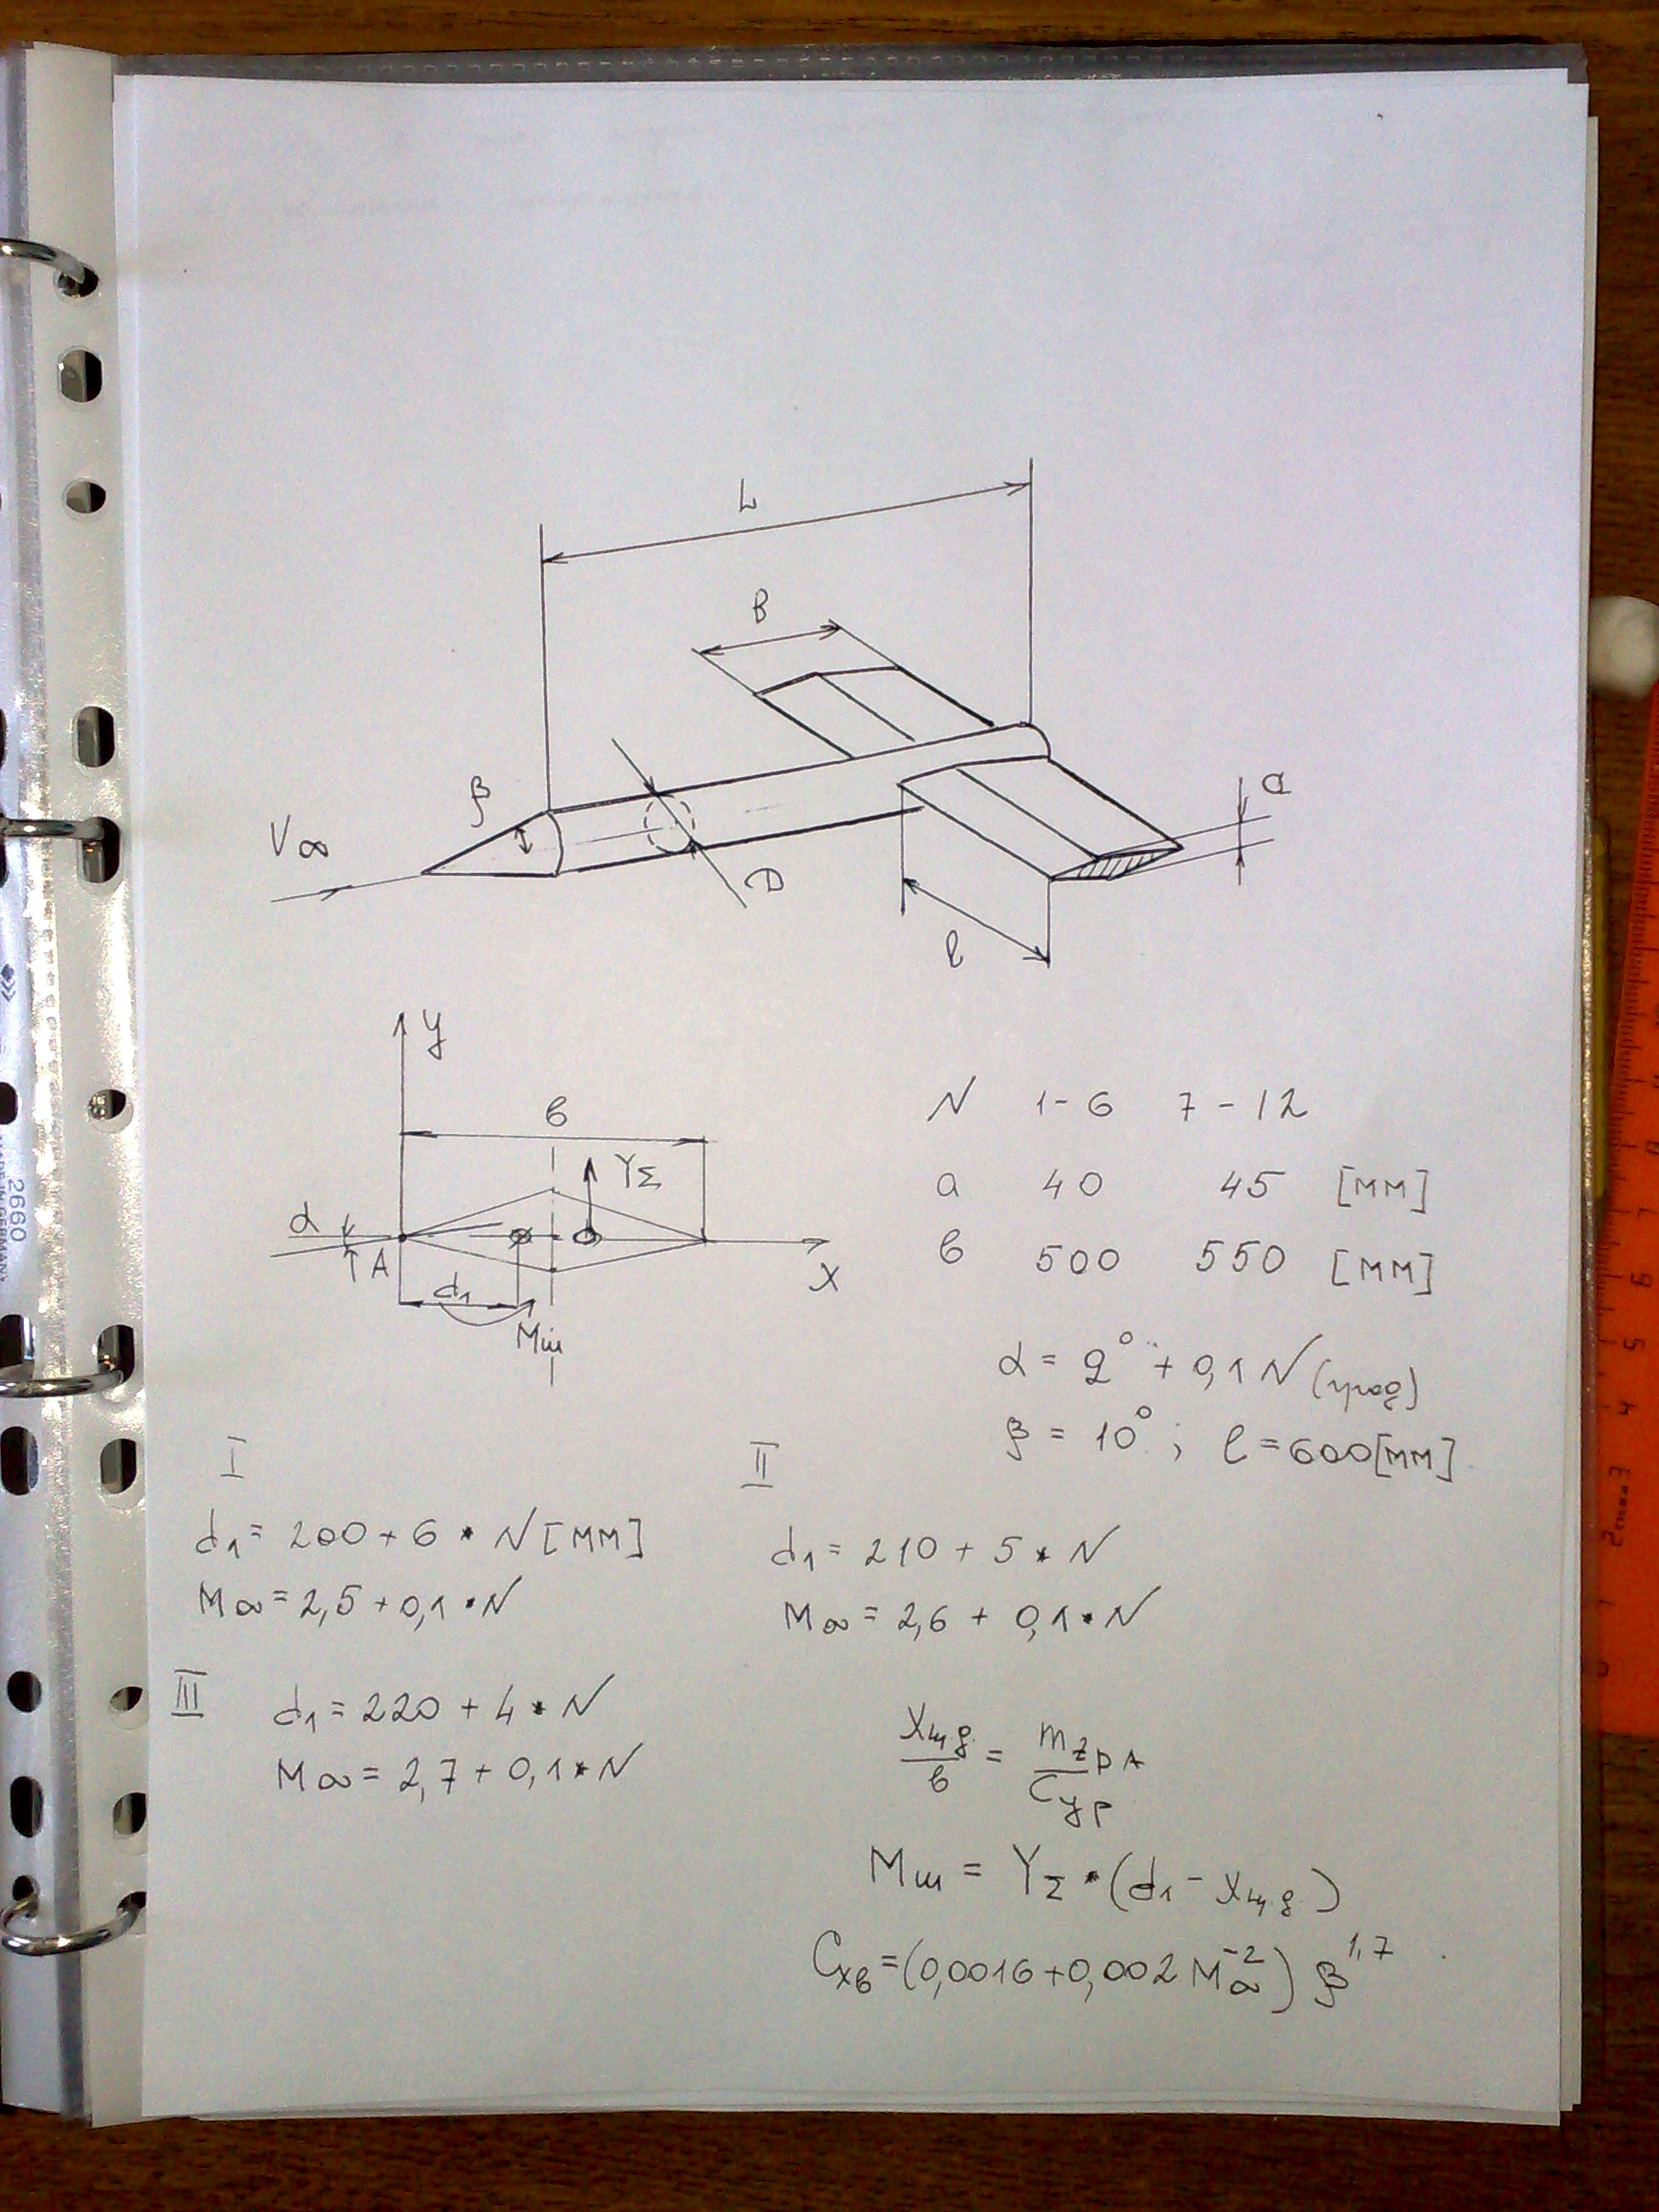 L
B
β
V∞
D
a
l
y
в
YΣ
α
A
x
d₁
Mш
N 1-6 7-12
a 40 45 [мм]
в 500 550 [мм]
α = 2° + 0,1 N (град)
β = 10° ; l = 600 [мм]
I
d₁ = 200 + 6 * N [мм]
M∞ = 2,5 + 0,1 * N
II
d₁ = 210 + 5 * N
M∞ = 2,6 + 0,1 * N
III
d₁ = 220 + 4 * N
M∞ = 2,7 + 0,1 * N
Xцд/в = mzpA/Cyp
Mш = YΣ * (d₁ - Xцд)
Cxв = (0,0016 + 0,002 M∞⁻²) β^1,7
2660